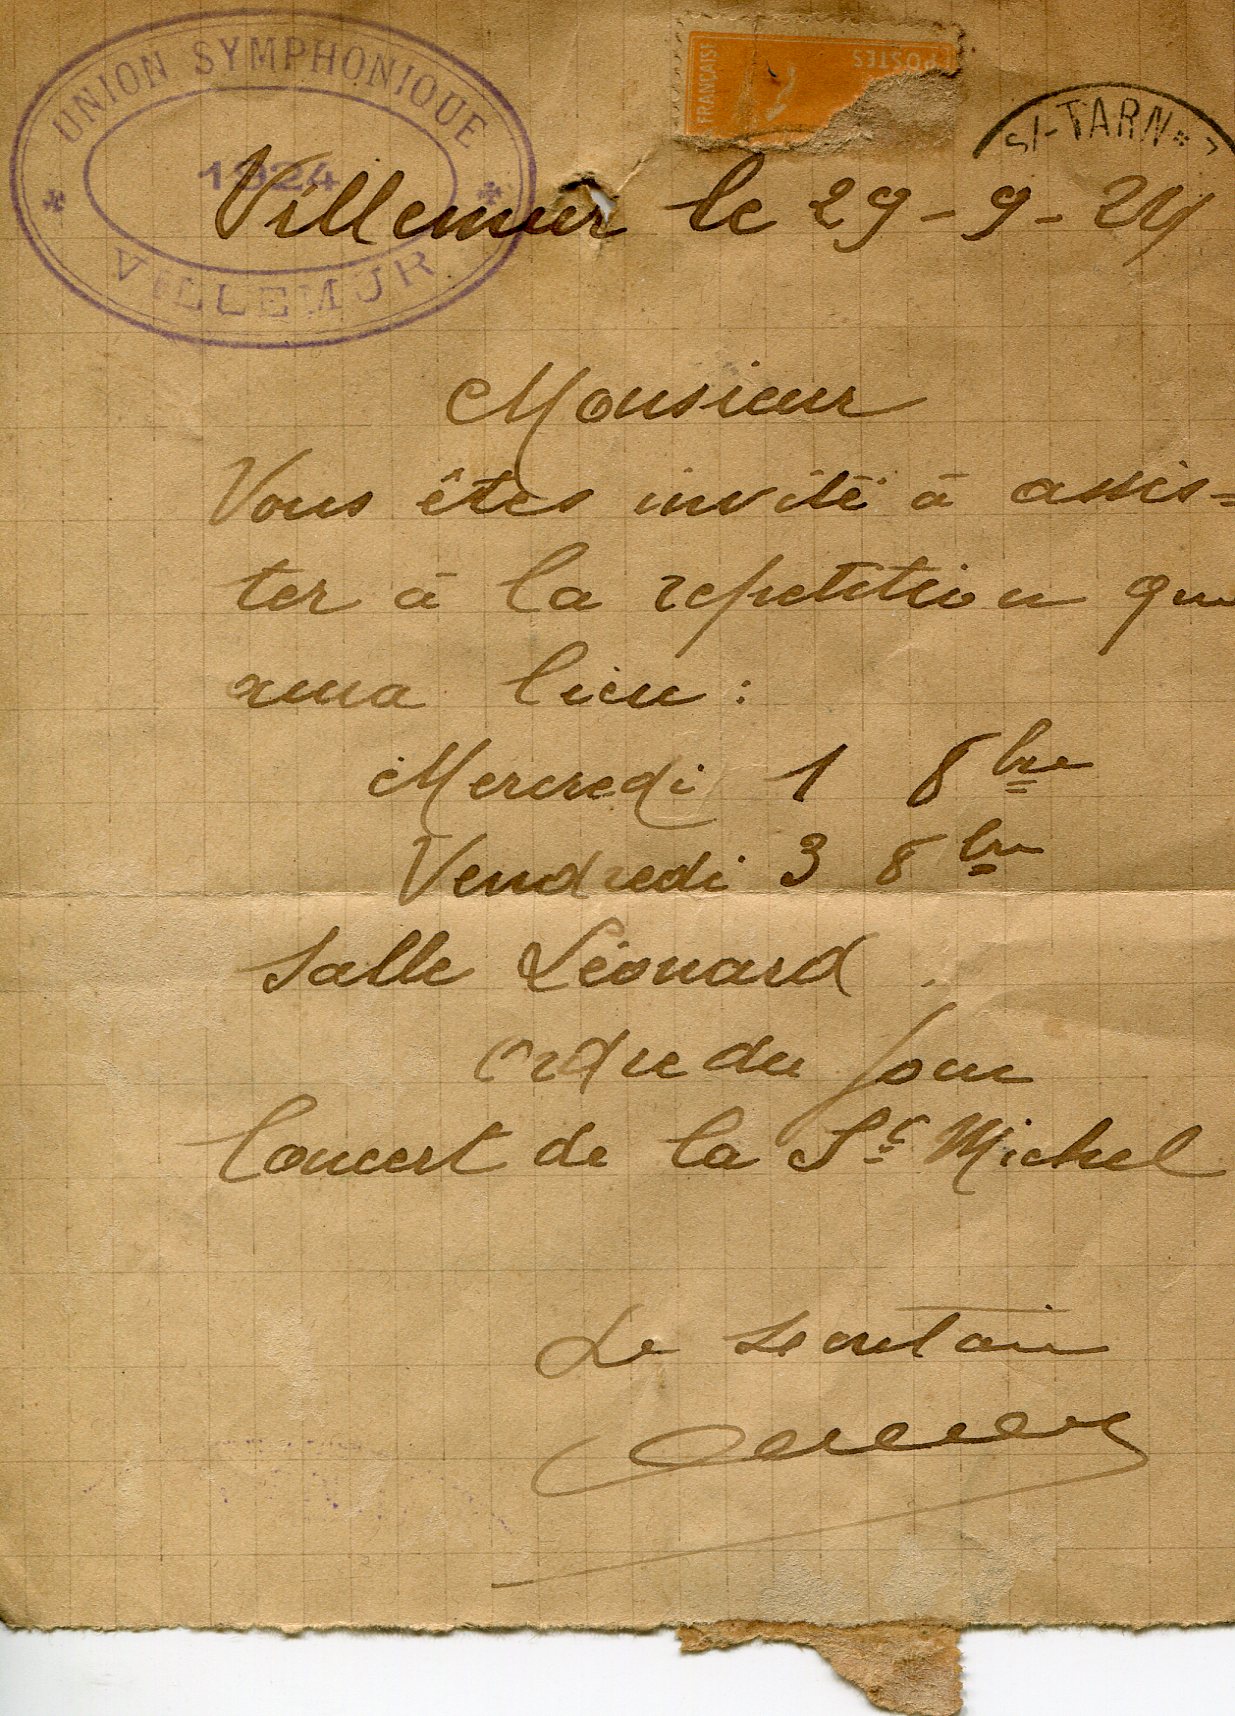 UNION SYMPHONIQUE
1924
VILLEMUR
FRANÇAISE
POSTES
ST-TARN
Villemur le 29-9-24
Monsieur
Vous êtes invité à assis=
ter à la repetition qui
aura lieu :
Mercredi 1 8bre
Vendredi 3 8bre
Salle Léonard.
Ordre du Jour
Concert de la St Michel
Le Secretaire